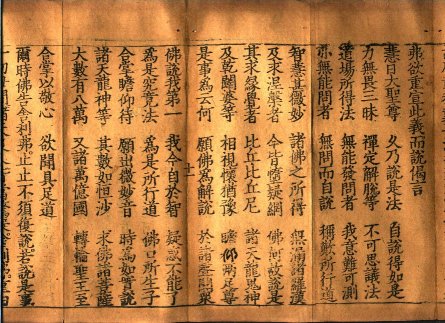 弗欲重宣此義而說偈言
慧日大聖尊 久乃說是法 自說得如是
力無畏三昧 禪定解脫等 不可思議法
道場所得法 無能發問者 我意難可測
亦無能問者 無問而自說 稱歎所行道
智慧甚微妙 諸佛之所得 無漏諸羅漢
及求涅槃者 今皆墮疑網 佛何故說是
其求緣覺者 比丘比丘尼 諸天龍鬼神
及乾闥婆等 相視懷猶豫 瞻仰兩足尊
是事為云何 願佛為解說 於諸聲聞眾
佛說我第一 我今自於智 疑惑不能了
為是究竟法 為是所行道 佛口所生子
合掌瞻仰待 願出微妙音 時為如實說
諸天龍神等 其數如恒沙 求佛諸菩薩
大數有八萬 又諸萬億國 轉輪聖王至
合掌以敬心 欲聞具足道
爾時佛告舍利弗止止不須復說若說是事